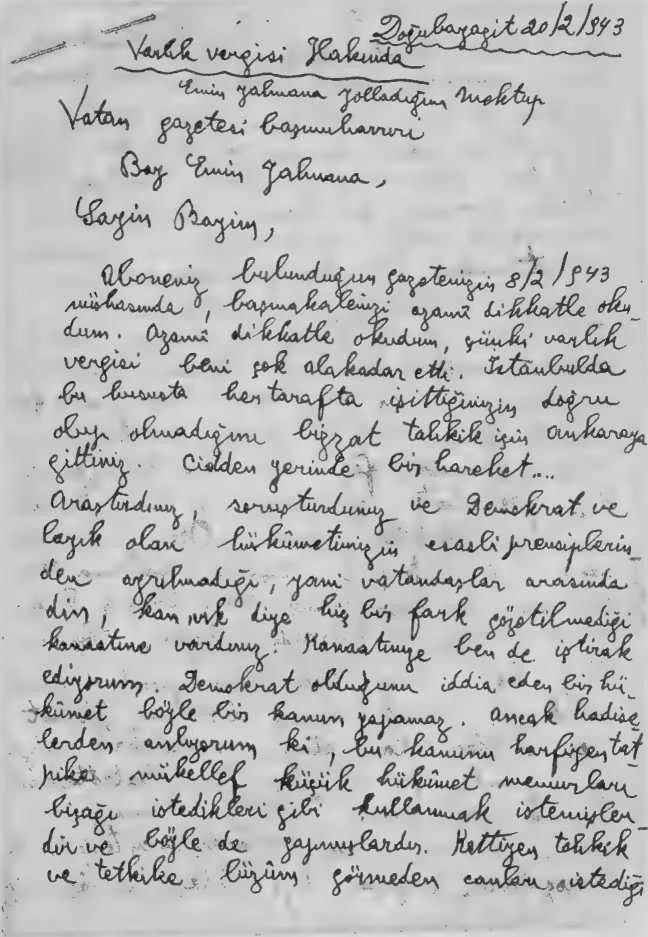 Doğubayazit 20/2/943
Varlık vergisi Hakında
Emin Yalmana Yolladığım Mektup
Vatan gazetesi başmuharriri
Bay Emin Yalmana,
Sayin Bayim,
Aboneniz bulunduğum gazetenizin 8/2/943
nüshasında, başmakalenizi azamî dikkatle oku-
dum. Azamî dikkatle okudum, çünki varlık
vergisi beni çok alakadar etti. İstanbulda
bu hususta her tarafta işittiğinizin doğru
olup olmadığını bizzat tahkik için Ankaraya
gittiniz. Cidden yerinde bir hareket....
Araştırdınız, soruşturdunuz ve Demokrat ve
layık olan hükûmetimizin esasli prensiplerin-
den ayrılmadığı, yani vatandaşlar arasında
din, kan, ırk diye hiç bir fark gözetilmediği
kanaatine vardınız. Kanaatinize ben de iştirak
ediyorum. Demokrat olduğunu iddia eden bir hü-
kûmet böyle bir kanun yapamaz. Ancak hadise-
lerden anlıyorum ki, bu kanunu harfiyen tat-
pike mükellef küçük hükûmet memurları
bıçağı istedikleri gibi kullanmak istemişler-
dir ve böyle de yapmışlardır. Kettiyen tahkik
ve tetkike lüzûm görmeden canları istediği